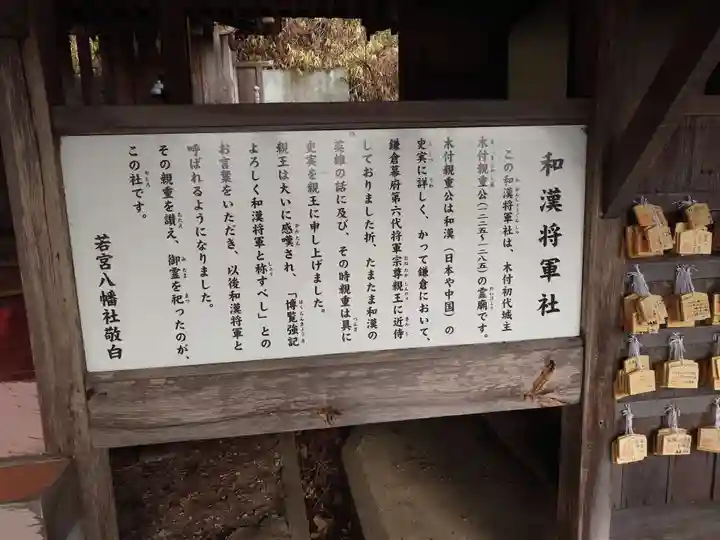 和漢将軍社
この和漢将軍社は、木付初代城主
木付親重公(一二二五~一二八五)の霊廟です。
木付親重公は和漢(日本や中国)の
史実に詳しく、かって鎌倉において、
鎌倉幕府第六代将軍宗尊親王に近侍
しておりました折、たまたま和漢の
英雄の話に及び、その時親重は具に
史実を親王に申し上げました。
親王は大いに感嘆され、「博覧強記
よろしく和漢将軍と称すべし」との
お言葉をいただき、以後和漢将軍と
呼ばれるようになりました。
その親重を讃え、御霊を祀ったのが、
この社です。
若宮八幡社敬白